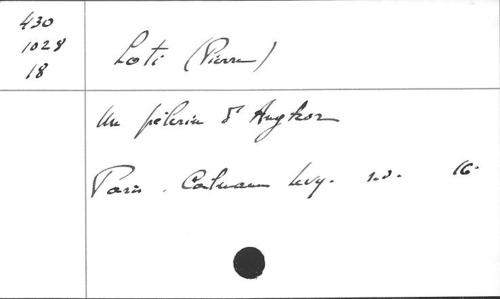 430
1028
18
Loti (Pierre)
Un pèlerin d'Angkor
Paris. Calmann Levy. s.d. 16.